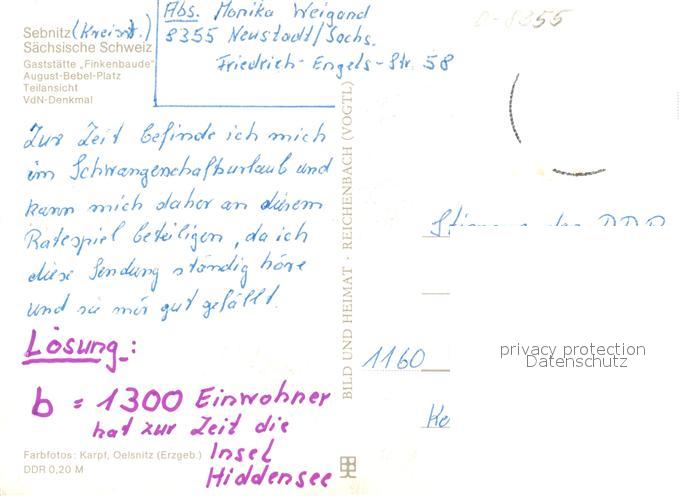 Abs. Monika Weigand
8355 Neustadt/Sachs.
Friedrich-Engels-Str. 58
D-8355
Sebnitz (Kreisst.)
Sächsische Schweiz
Gaststätte „Finkenbaude"
August-Bebel-Platz
Teilansicht
VdN-Denkmal
Zur Zeit befinde ich mich
im Schwangerschafturlaub und
kann mich daher an diesem
Ratespiel beteiligen, da ich
diese Sendung ständig höre
und sie mir gut gefällt.
Lösung:
b = 1300 Einwohner
hat zur Zeit die
Insel
Hiddensee
Farbfotos: Karpf, Oelsnitz (Erzgeb.)
DDR 0,20 M
BILD UND HEIMAT · REICHENBACH (VOGTL)
Stimme der DDR
1160
privacy protection
Datenschutz